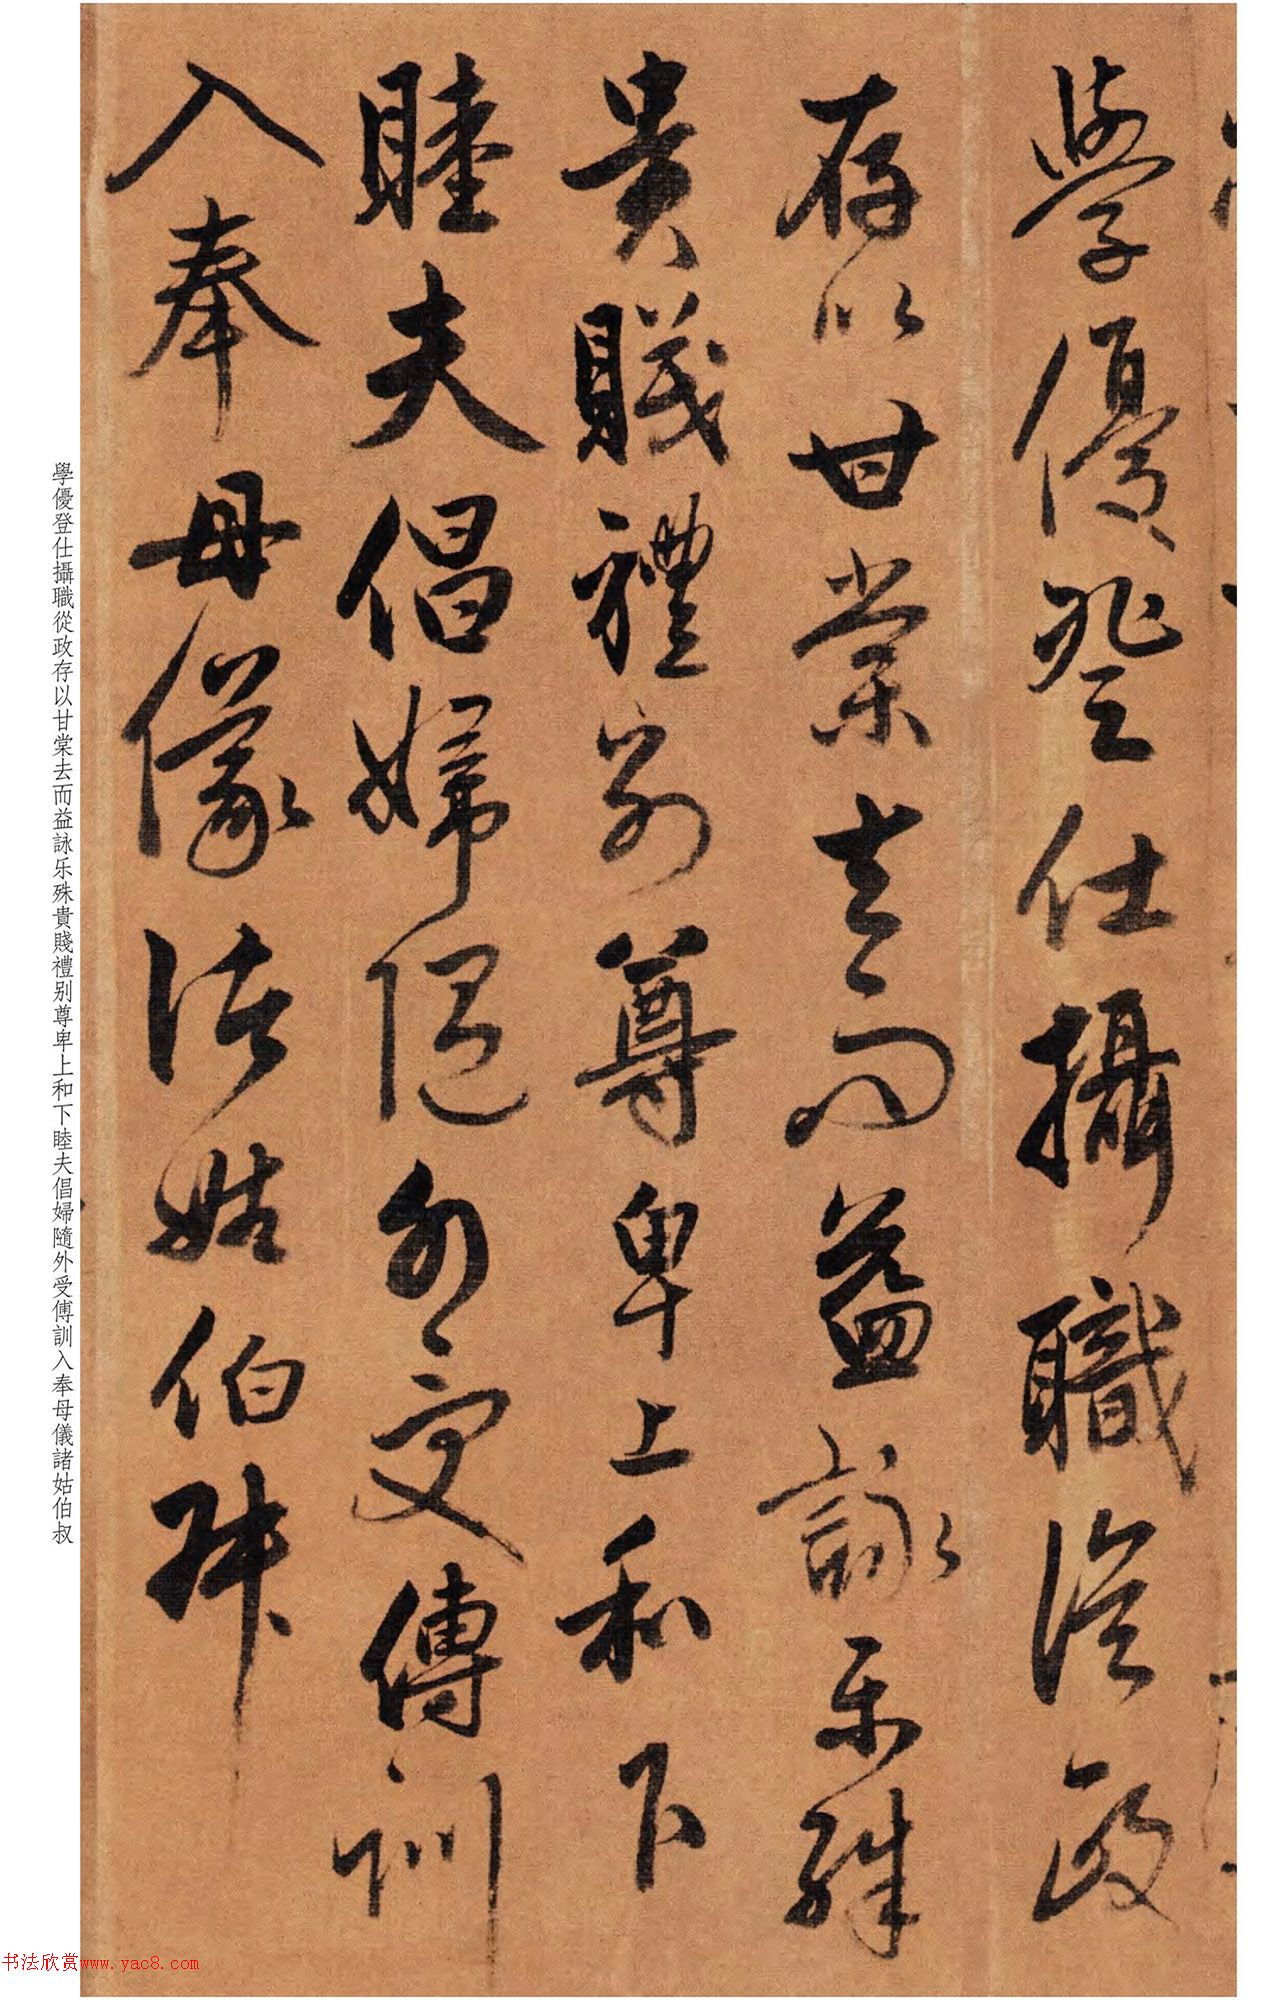 學優登仕攝職從政
存以甘棠去而益詠乐殊
貴賤禮别尊卑上和下
睦夫倡婦隨外受傅訓
入奉母儀諸姑伯叔
學優登仕攝職從政存以甘棠去而益詠乐殊貴賤禮别尊卑上和下睦夫倡婦隨外受傅訓入奉母儀諸姑伯叔
书法欣赏www.yac8.com